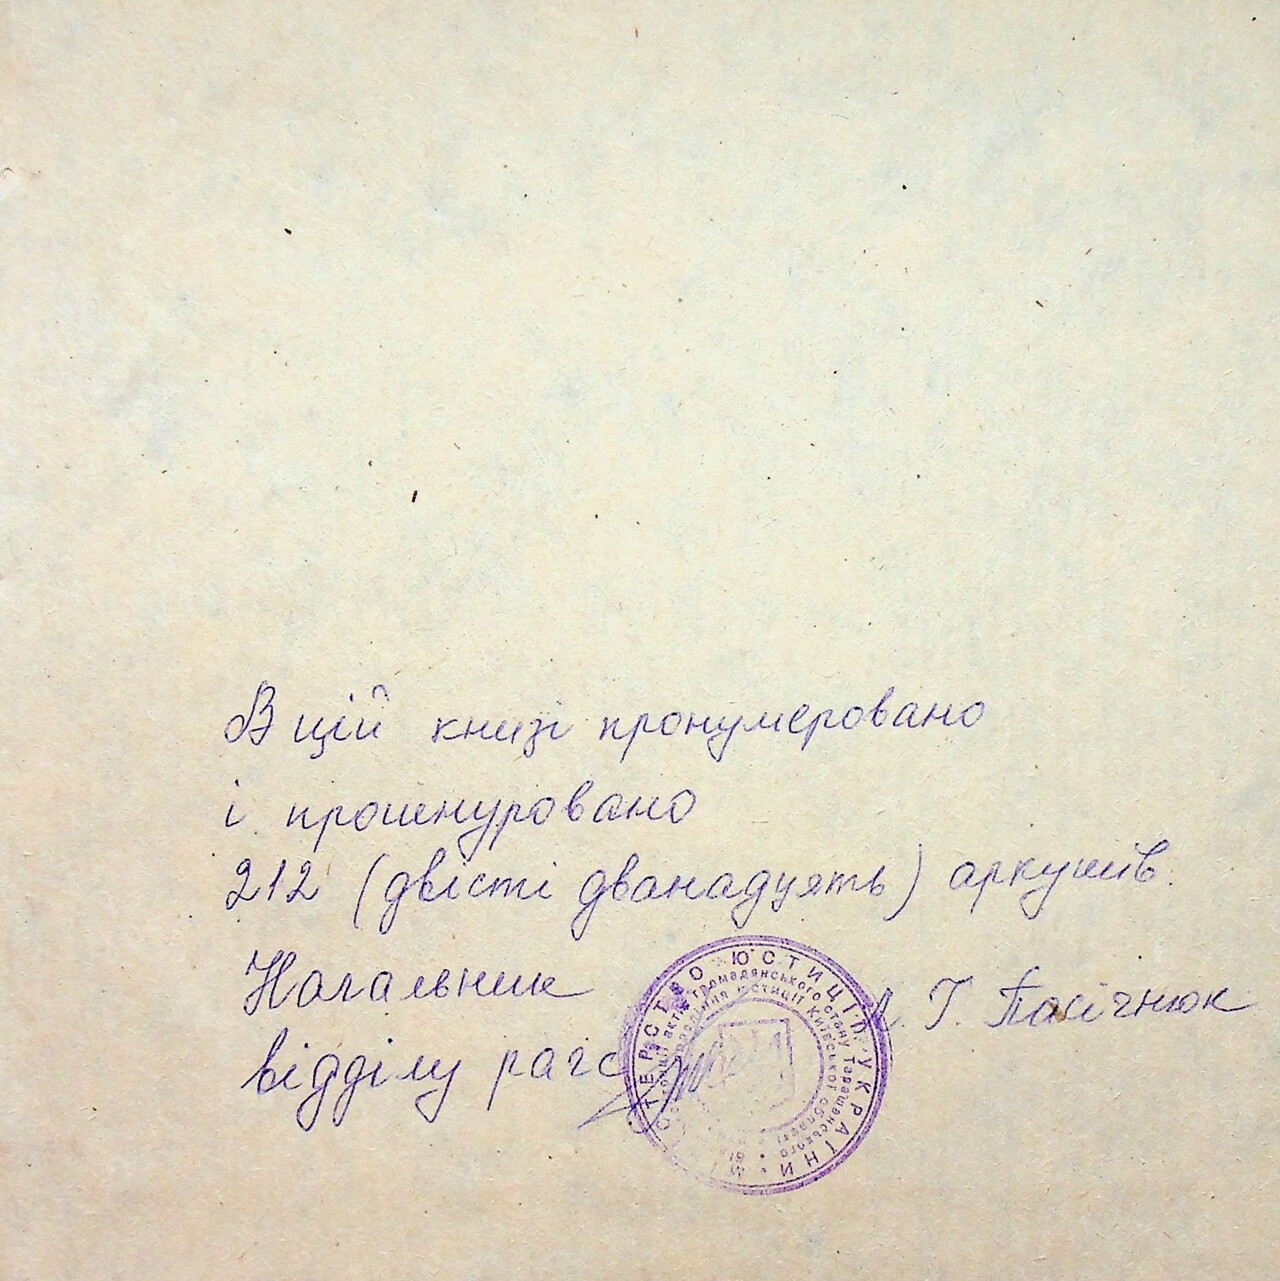 В цій книзі пронумеровано
і прошнуровано
212 (двісті дванадцять) аркушів.
Начальник
Г. Пасічнюк
відділу рагс
МІНІСТЕРСТВО ЮСТИЦІЇ УКРАЇНИ
актів громадянського стану Таращанського
юстиції Київської області